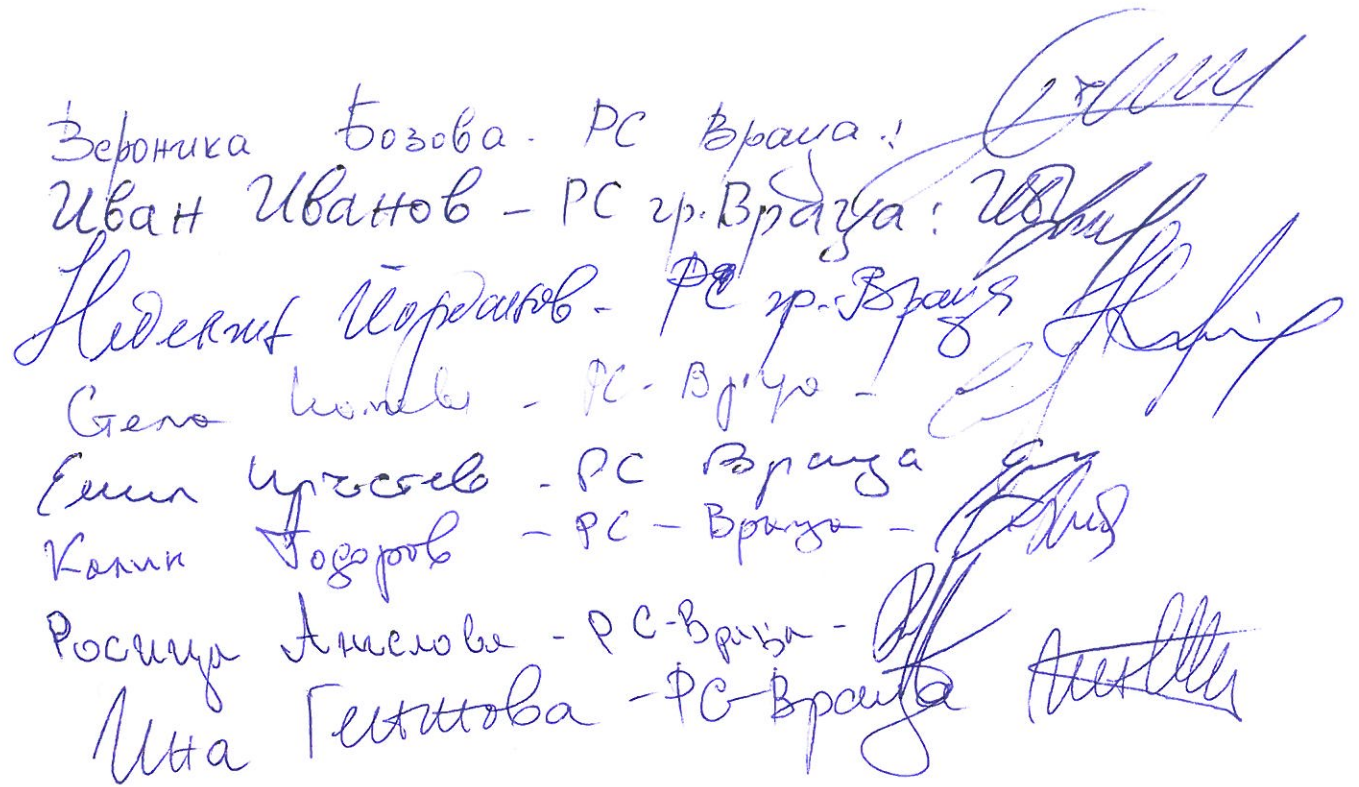 Вероника Бозова - РС Враца:
Иван Иванов - РС гр. Враца:
Йорданов - РС гр. Враца
Стела - РС - Враца -
Емил - РС Враца
Калин Тодоров - РС - Враца -
Росица Ангелова - РС - Враца -
Ина - РС - Враца